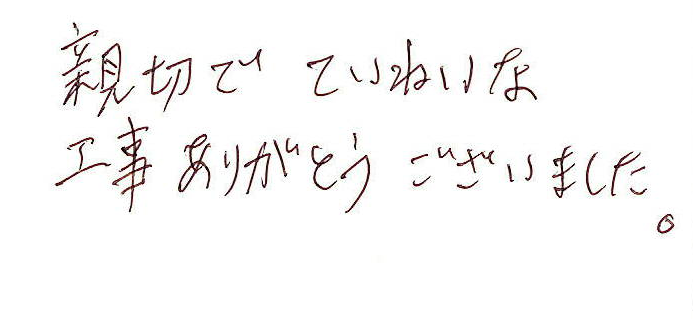 親切で ていねいな
工事ありがとうございました。